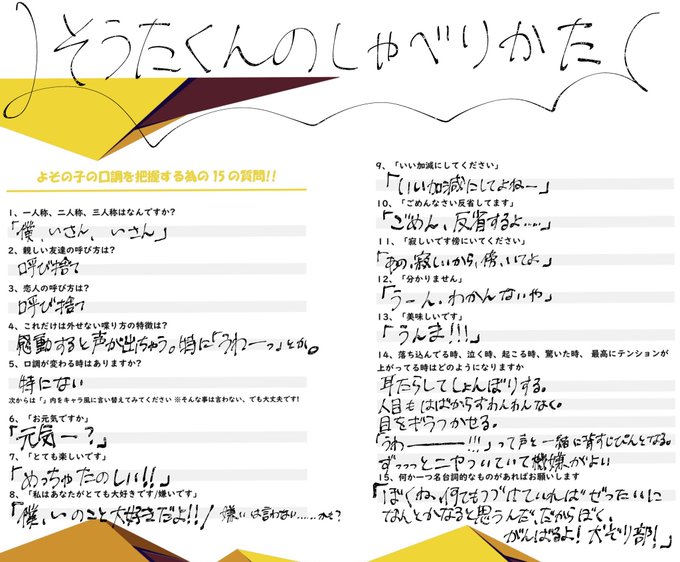 そうたくんのしゃべりかた
よその子の口調を把握する為の15の質問!!
1、一人称、二人称、三人称はなんですか?
「僕、いさん、いさん」
2、親しい友達の呼び方は?
呼び捨て
3、恋人の呼び方は?
呼び捨て
4、これだけは外せない喋り方の特徴は?
感動すると声が出ちゃう。特に「うわーっ」とか。
5、口調が変わる時はありますか?
特にない
次からは「」内をキャラ風に言い替えてみてください ※そんな事は言わない、でも大丈夫です!
6、「お元気ですか」
「元気ー?」
7、「とても楽しいです」
「めっちゃたのしい!!」
8、「私はあなたがとても大好きです/嫌いです」
「僕、いのこと大好きだよ!!/嫌いは言わない……かも?
9、「いい加減にしてください」
「いい加減にしてよねー」
10、「ごめんなさい反省してます」
「ごめん、反省するよ……」
11、「寂しいです傍にいてください」
「あの、寂しいから、傍、いてよ」
12、「分かりません」
「うーん、わかんないや」
13、「美味しいです」
「うんま!!!」
14、落ち込んでる時、泣く時、起こる時、驚いた時、 最高にテンションが
上がってる時はどのようになりますか
耳たらしてしょんぼりする。
人目もはばからずわんわんなく。
目をギラつかせる。
「うわー!!!」って声と一緒に背すじぴんとなる。
ずっっっとニヤついていて機嫌がよい
15、何か一つる台詞的なものがあればお願いします
「ぼくね、何でもつづけていればぜったいに
なんとかなると思うんだ、だからぼく、
がんばるよ!犬ぞり部!」